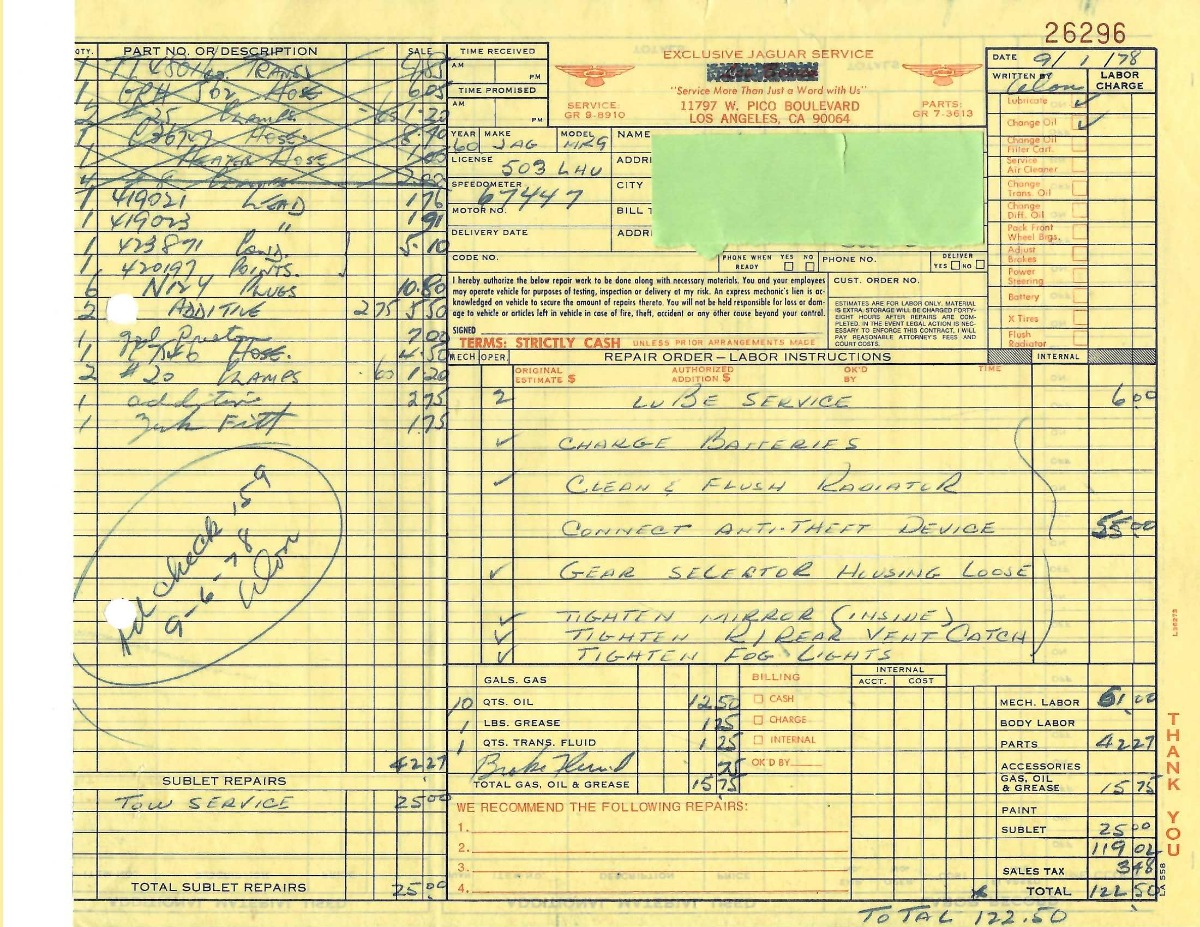 26296
EXCLUSIVE JAGUAR SERVICE
"Service More Than Just a Word with Us"
SERVICE:
GR 9-8910
11797 W. PICO BOULEVARD
LOS ANGELES, CA 90064
PARTS:
GR 7-3613
DATE 9/1/78
WRITTEN BY
LABOR CHARGE
Lubricate ✓
Change Oil ✓
Change Oil Filter Cart.
Service Air Cleaner
Change Trans. Oil
Change Diff. Oil
Pack Front Wheel Brgs.
Adjust Brakes
Power Steering
Battery
X Tires
Flush Radiator
TIME RECEIVED
AM PM
TIME PROMISED
AM PM
YEAR 60 MAKE JAG MODEL MK9
LICENSE 503 LHU
SPEEDOMETER 67447
MOTOR NO.
DELIVERY DATE
CODE NO.
NAME
ADDR
CITY
BILL T
ADDR
PHONE WHEN READY YES NO
PHONE NO.
DELIVER YES NO
I hereby authorize the below repair work to be done along with necessary materials. You and your employees
may operate vehicle for purposes of testing, inspection or delivery at my risk. An express mechanic's lien is ac-
knowledged on vehicle to secure the amount of repairs thereto. You will not be held responsible for loss or dam-
age to vehicle or articles left in vehicle in case of fire, theft, accident or any other cause beyond your control.
SIGNED
TERMS: STRICTLY CASH UNLESS PRIOR ARRANGEMENTS MADE
CUST. ORDER NO.
ESTIMATES ARE FOR LABOR ONLY, MATERIAL
IS EXTRA. STORAGE WILL BE CHARGED FORTY-
EIGHT HOURS AFTER REPAIRS ARE COM-
PLETED. IN THE EVENT LEGAL ACTION IS NEC-
ESSARY TO ENFORCE THIS CONTRACT, I WILL
PAY REASONABLE ATTORNEY'S FEES AND
COURT COSTS.
QTY. PART NO. OR DESCRIPTION SALE
TRANS
1 GRH 502 HOSE 6.05
CLAMPS 1.20
HOSE 8.40
HEATER HOSE
1 419021 LEAD 1 76
1 419023 " 1 91
1 423871 COND. 5.10
1 420197 POINTS.
6 N12Y PLUGS 10.80
2 ADDITIVE 2 75 5 50
1 gal Preston 7.00
1 HOSE. 4.50
2 #20 CLAMPS .60 1.20
1 additive 2 75
1 Zerk Fitt 1.75
Pd check 159
9-6-78
42 27
SUBLET REPAIRS
TOW SERVICE 25 00
TOTAL SUBLET REPAIRS 25.00
MECH. OPER. REPAIR ORDER — LABOR INSTRUCTIONS INTERNAL
ORIGINAL ESTIMATE $ AUTHORIZED ADDITION $ OK'D BY TIME
2 LUBE SERVICE 6 00
✓ CHARGE BATTERIES
✓ CLEAN & FLUSH RADIATOR
CONNECT ANTI-THEFT DEVICE 55 00
✓ GEAR SELECTOR HOUSING LOOSE
✓ TIGHTEN MIRROR (INSIDE)
✓ TIGHTEN R/REAR VENT CATCH
✓ TIGHTEN FOG LIGHTS
GALS. GAS
10 QTS. OIL 12 50
1 LBS. GREASE 1 25
1 QTS. TRANS. FLUID 1 25
Brake Fluid 75
TOTAL GAS, OIL & GREASE 15 75
BILLING
CASH
CHARGE
INTERNAL
OK'D BY
INTERNAL
ACCT. COST
WE RECOMMEND THE FOLLOWING REPAIRS:
1.
2.
3.
4.
MECH. LABOR 61.00
BODY LABOR
PARTS 42 27
ACCESSORIES
GAS, OIL & GREASE 15 75
PAINT
SUBLET 25 00
119 02
SALES TAX 3 48
TOTAL 122 50
TOTAL 122.50
THANK YOU
LA 558
L36275